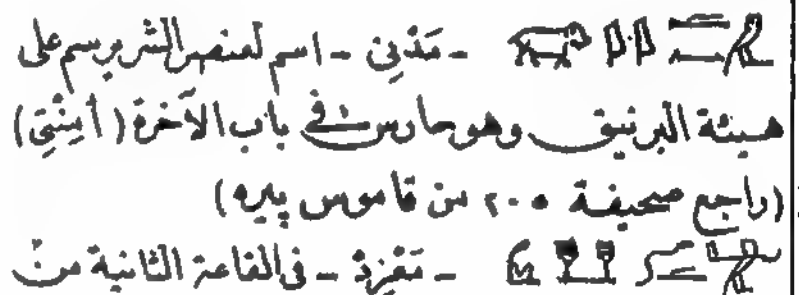 - مَدْنِى - اسم لعنصر الشر يرسم على
هيئة البرنيق وهو حارس فى باب الآخرة (أمِنْتِى)
(راجع صحيفة ٢٠٥ من قاموس پيره)
- فى القاعة الثانية من